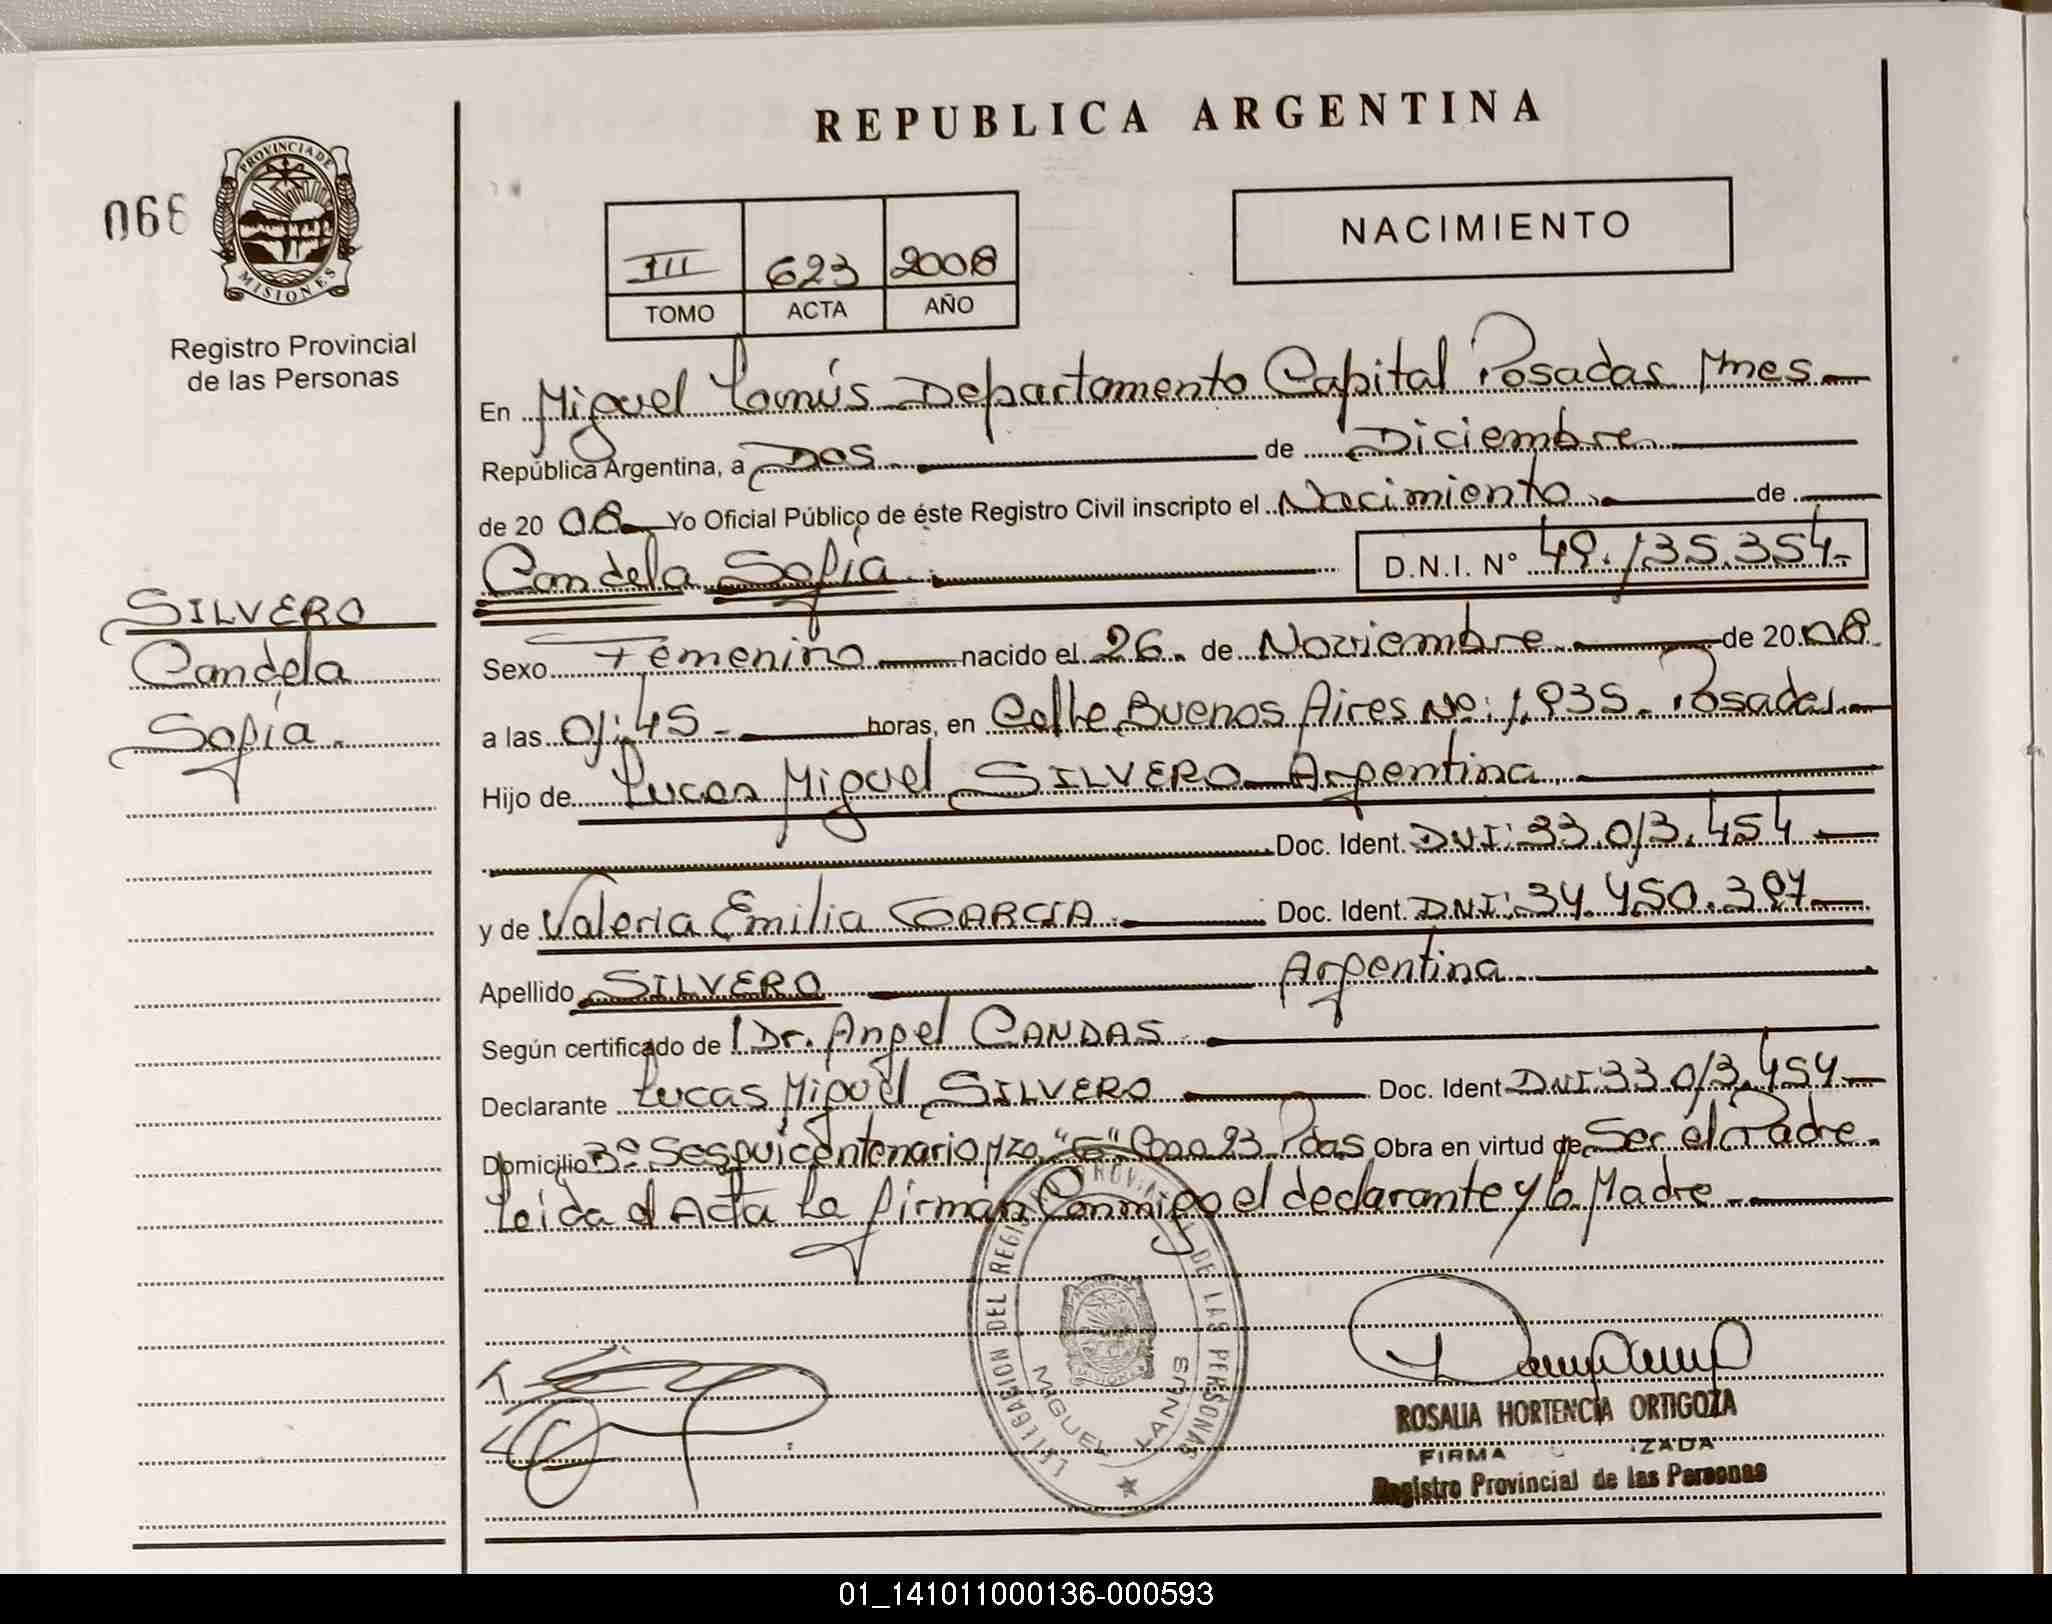 REPUBLICA ARGENTINA
066
PROVINCIA DE
MISIONES
Registro Provincial
de las Personas
NACIMIENTO
III 623 2008
TOMO ACTA AÑO
En Miguel Lanús Departamento Capital Posadas Mnes
República Argentina, a Dos de Diciembre
de 20 08 Yo Oficial Público de éste Registro Civil inscripto el Nacimiento de
Candela Sofía D.N.I. N° 49.135.354
SILVERO
Candela
Sofía
Sexo Femenino nacido el 26 de Noviembre de 20 08
a las 01:45 horas, en Calle Buenos Aires No: 1.935 Posadas
Hijo de Lucas Miguel SILVERO Argentina
Doc. Ident. DNI: 33.013.454
y de Valeria Emilia GARCIA Doc. Ident. DNI: 34.450.397
Apellido SILVERO Argentina
Según certificado de Dr. Angel CANDAS
Declarante Lucas Miguel SILVERO Doc. Ident DNI: 33.013.454
Domicilio Bº Sesquicentenario Mzo "E" Casa 23 Pdas Obra en virtud de Ser el Padre
Leida el Acta La firman Conmigo el declarante y la Madre
DELEGACION DEL REGISTRO PROVINCIAL DE LAS PERSONAS
MIGUEL LANUS
ROSALIA HORTENCIA ORTIGOZA
FIRMA
Registro Provincial de las Personas
01_141011000136-000593